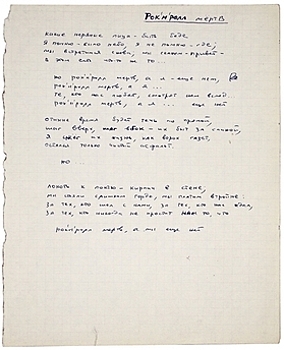 Рок'н'ролл мертв
Какие нервные лица - быть беде
Я помню - было небо, я не помню - где;
мы встретимся снова, мы скажем - привет -
в этом есть что-то не то...
но рок'н'ролл мертв, а я - еще нет,
рок'н'ролл мертв, а я ...
те, кто нас любят, смотрят нам вслед.
рок'н'ролл мертв, а я ... еще нет
Отныне время будет течь по прямой,
шаг вверх, шаг вбок - их мир за спиной.
Я сжег их жизнь, как ворох газет,
остался только грязный асфальт.
но ...
Локоть к локтю - кирпич в стене,
мы стоим слишком гордо, мы платим втройне:
за тех, кто шел с нами, за тех, кто нас ждал,
за тех, кто никогда не простит нам то, что
рок'н'ролл мертв, а мы еще нет